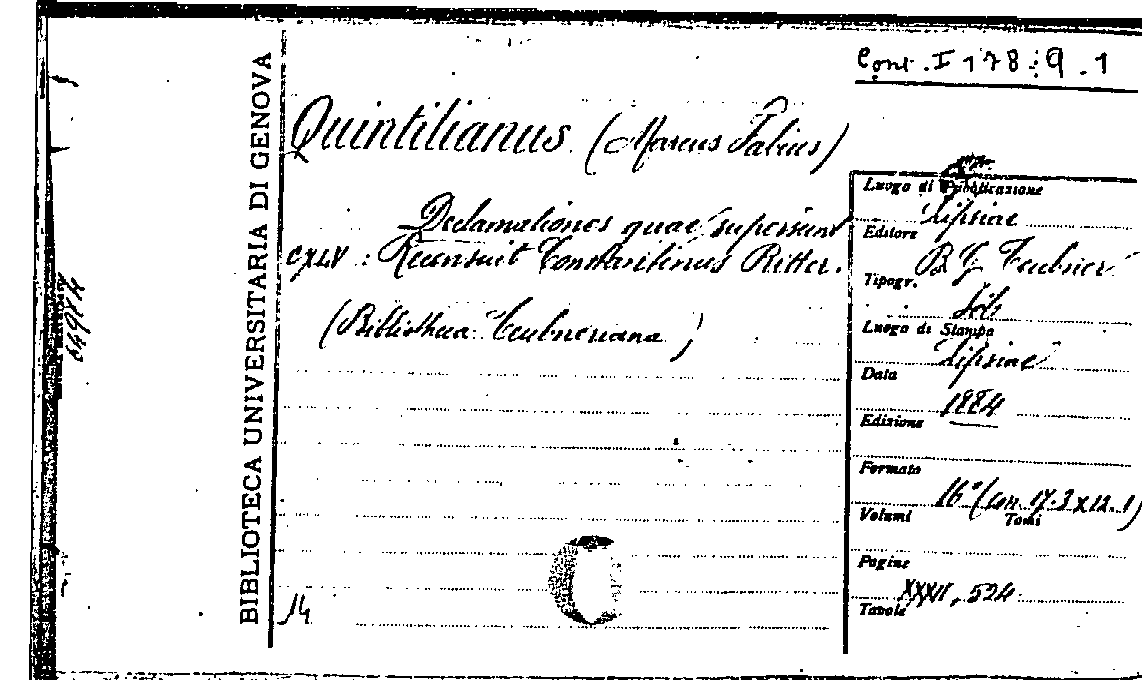 Cont. I 178:9.1
BIBLIOTECA UNIVERSITARIA DI GENOVA
Quintilianus (Marcus Fabius)
Declamationes quae supersunt
CXLV : Recensuit Constantinus Ritter.
(Bibliotheca Teubneriana)
14
Luogo di Pubblicazione
Lipsiae
Editore
B. G. Teubner
Tipogr.
Luogo di Stampa
Lipsiae
Data
1884
Edizione
Formato
16° (cm. 17.3x12.1)
Volumi Tomi
Pagine
XXXII, 524
Tavole